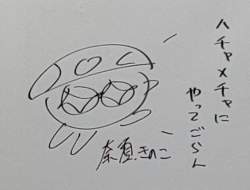 ハチャメチャに
やってごらん
奈須きのこ